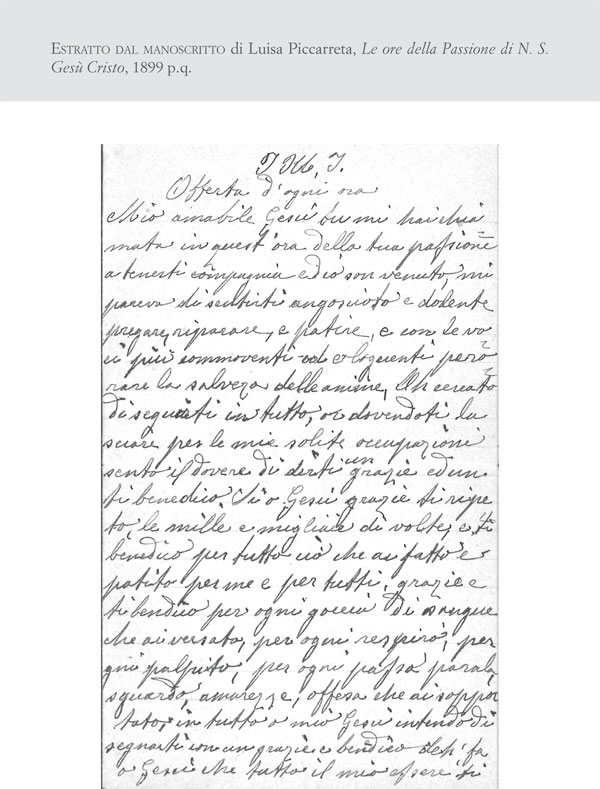 ESTRATTO DAL MANOSCRITTO di Luisa Piccarreta, Le ore della Passione di N. S.
Gesù Cristo, 1899 p.q.
J. M. J.
Offerta d'ogni ora
Mio amabile Gesù tu mi hai chia
mata in quest'ora della tua passione
a tenerti compagnia ed io son venuta, mi
pareva di sentirti angoscioto e dolente
pregare, riparare, e patire, e con le vo
ci più commoventi ed eloquenti pero
rare la salveza delle anime, Oh cercato
di seguirti in tutto, or dovendoti la
sciare per le mie solite occupazioni
sento il dovere di dirti un grazie ed un
ti benedico Sì o Gesù grazie ti ripe
to, le mille e migliaie di volte, e ti
benedico per tutto ciò che ai fatto e
patito per me e per tutti, grazie e
ti bendico per ogni goccia di sangue
che ai versato, per ogni respiro, per
gni palpito, per ogni passo parola,
sguardo, amarezze, offesa che ai soppor
tato, in tutto o mio Gesù intendo di
segnarti con un grazie e bendico deh! fa
o Gesù che tutto il mio essere ti